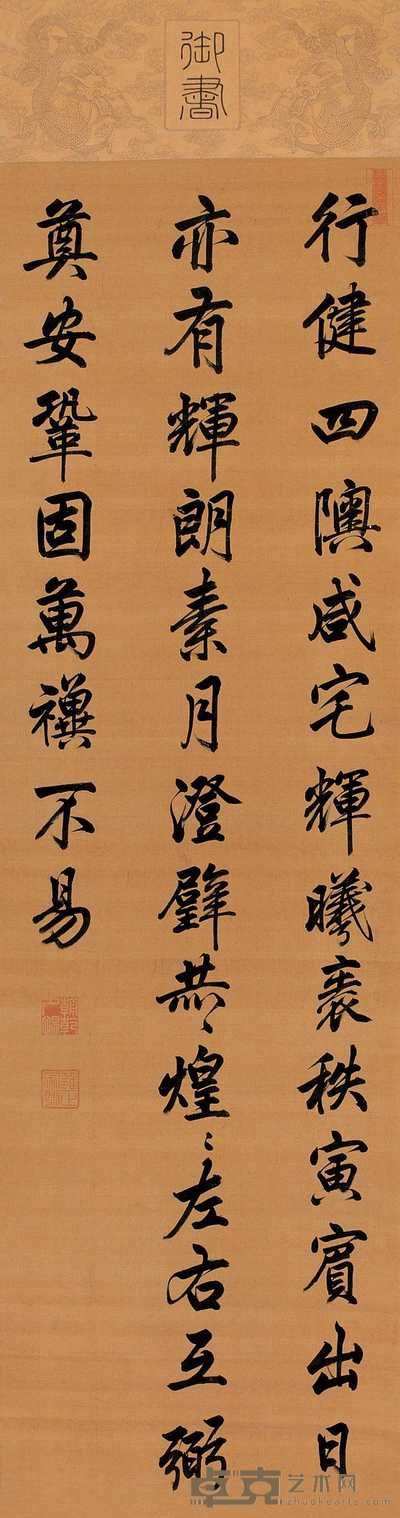 御書
行健四隩咸宅輝曦秩寅賓出日
亦有輝朗素月澄璧〻煌〻左右互弼
奠安鞏固萬禩不易
卓克艺术网
zhuokearts.com